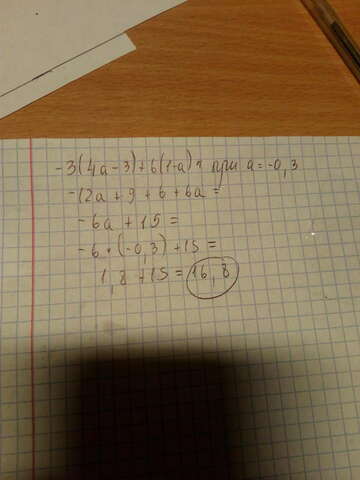 -3(4a-3)+6(1-a) при a=-0,3
-12a+9+6+6a=
-6a+15=
-6*(-0,3)+15=
1,8+15=16,8